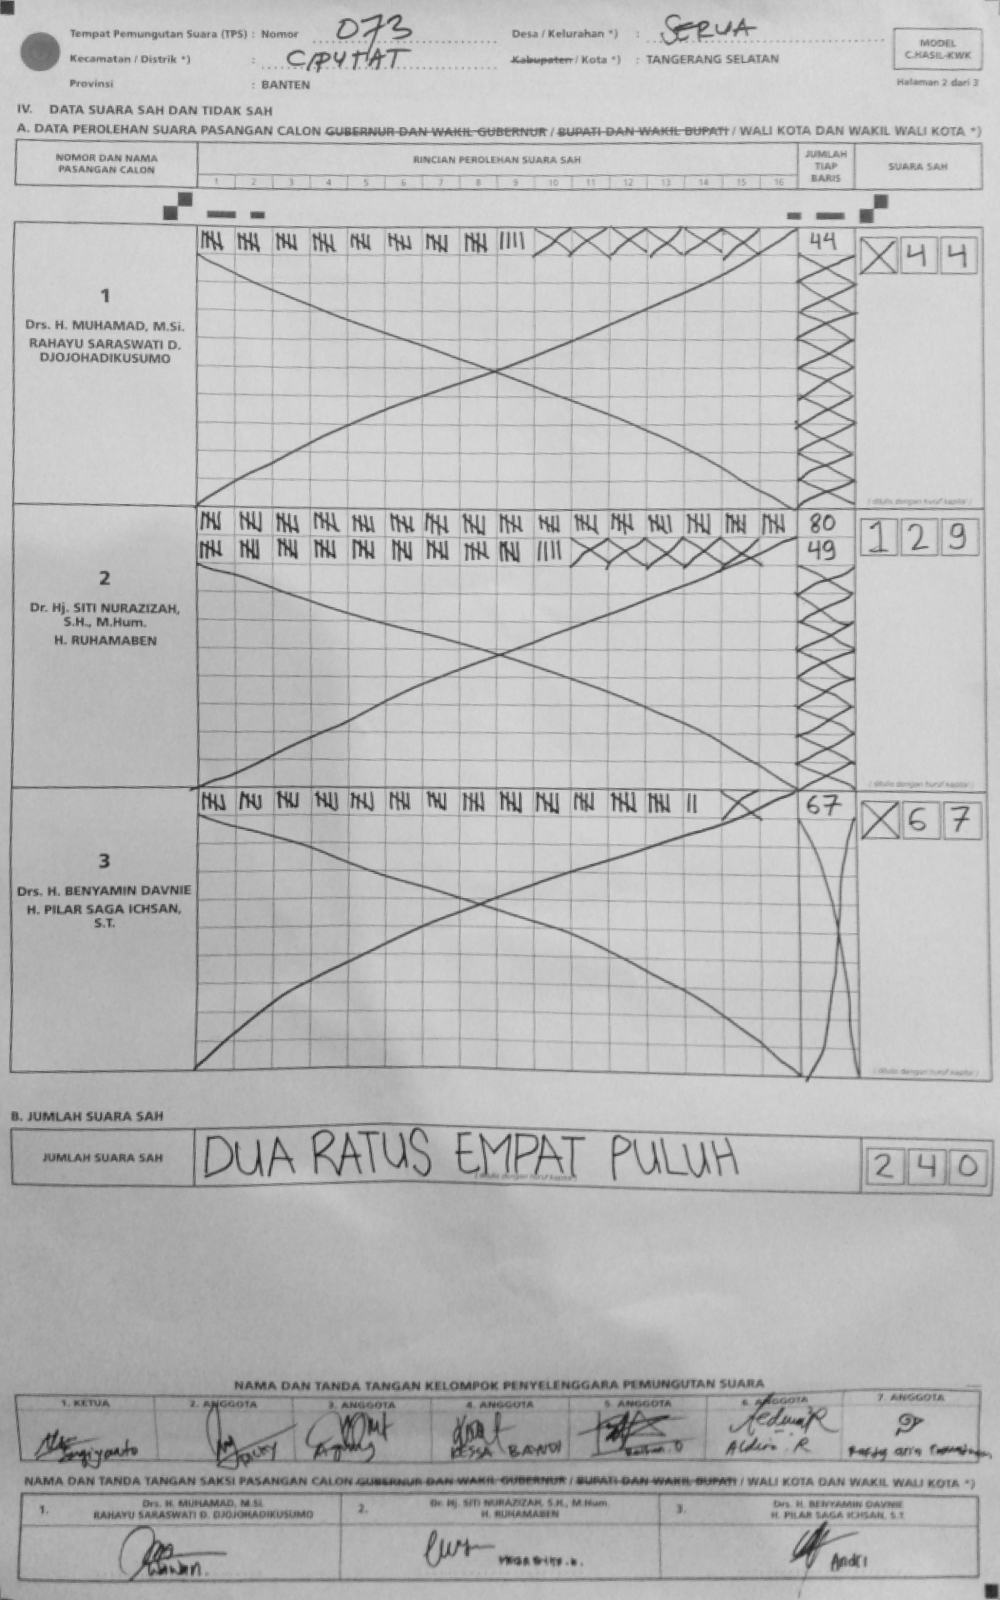 Tempat Pemungutan Suara (TPS) : Nomor 073 Desa / Kelurahan *) : SERUA
Kecamatan / Distrik *) : CIPUTAT Kabupaten / Kota *) : TANGERANG SELATAN
Provinsi : BANTEN
MODEL
C.HASIL-KWK
Halaman 2 dari 3
IV. DATA SUARA SAH DAN TIDAK SAH
A. DATA PEROLEHAN SUARA PASANGAN CALON GUBERNUR DAN WAKIL GUBERNUR / BUPATI DAN WAKIL BUPATI / WALI KOTA DAN WAKIL WALI KOTA *)
NOMOR DAN NAMA PASANGAN CALON
RINCIAN PEROLEHAN SUARA SAH
JUMLAH TIAP BARIS
SUARA SAH
1 2 3 4 5 6 7 8 9 10 11 12 13 14 15 16
1
Drs. H. MUHAMAD, M.Si.
RAHAYU SARASWATI D.
DJOJOHADIKUSUMO
44
X 4 4
( ditulis dengan huruf kapital )
2
Dr. Hj. SITI NURAZIZAH,
S.H., M.Hum.
H. RUHAMABEN
80
49
1 2 9
( ditulis dengan huruf kapital )
3
Drs. H. BENYAMIN DAVNIE
H. PILAR SAGA ICHSAN,
S.T.
67
X 6 7
( ditulis dengan huruf kapital )
B. JUMLAH SUARA SAH
JUMLAH SUARA SAH DUA RATUS EMPAT PULUH 2 4 0
( ditulis dengan huruf kapital )
NAMA DAN TANDA TANGAN KELOMPOK PENYELENGGARA PEMUNGUTAN SUARA
1. KETUA 2. ANGGOTA 3. ANGGOTA 4. ANGGOTA 5. ANGGOTA 6. ANGGOTA 7. ANGGOTA
Aldino . R
NAMA DAN TANDA TANGAN SAKSI PASANGAN CALON GUBERNUR DAN WAKIL GUBERNUR / BUPATI DAN WAKIL BUPATI / WALI KOTA DAN WAKIL WALI KOTA *)
1. Drs. H. MUHAMAD, M.Si.
RAHAYU SARASWATI D. DJOJOHADIKUSUMO
2. Dr. Hj. SITI NURAZIZAH, S.H., M.Hum.
H. RUHAMABEN
3. Drs. H. BENYAMIN DAVNIE
H. PILAR SAGA ICHSAN, S.T.
WAWAN. Andri